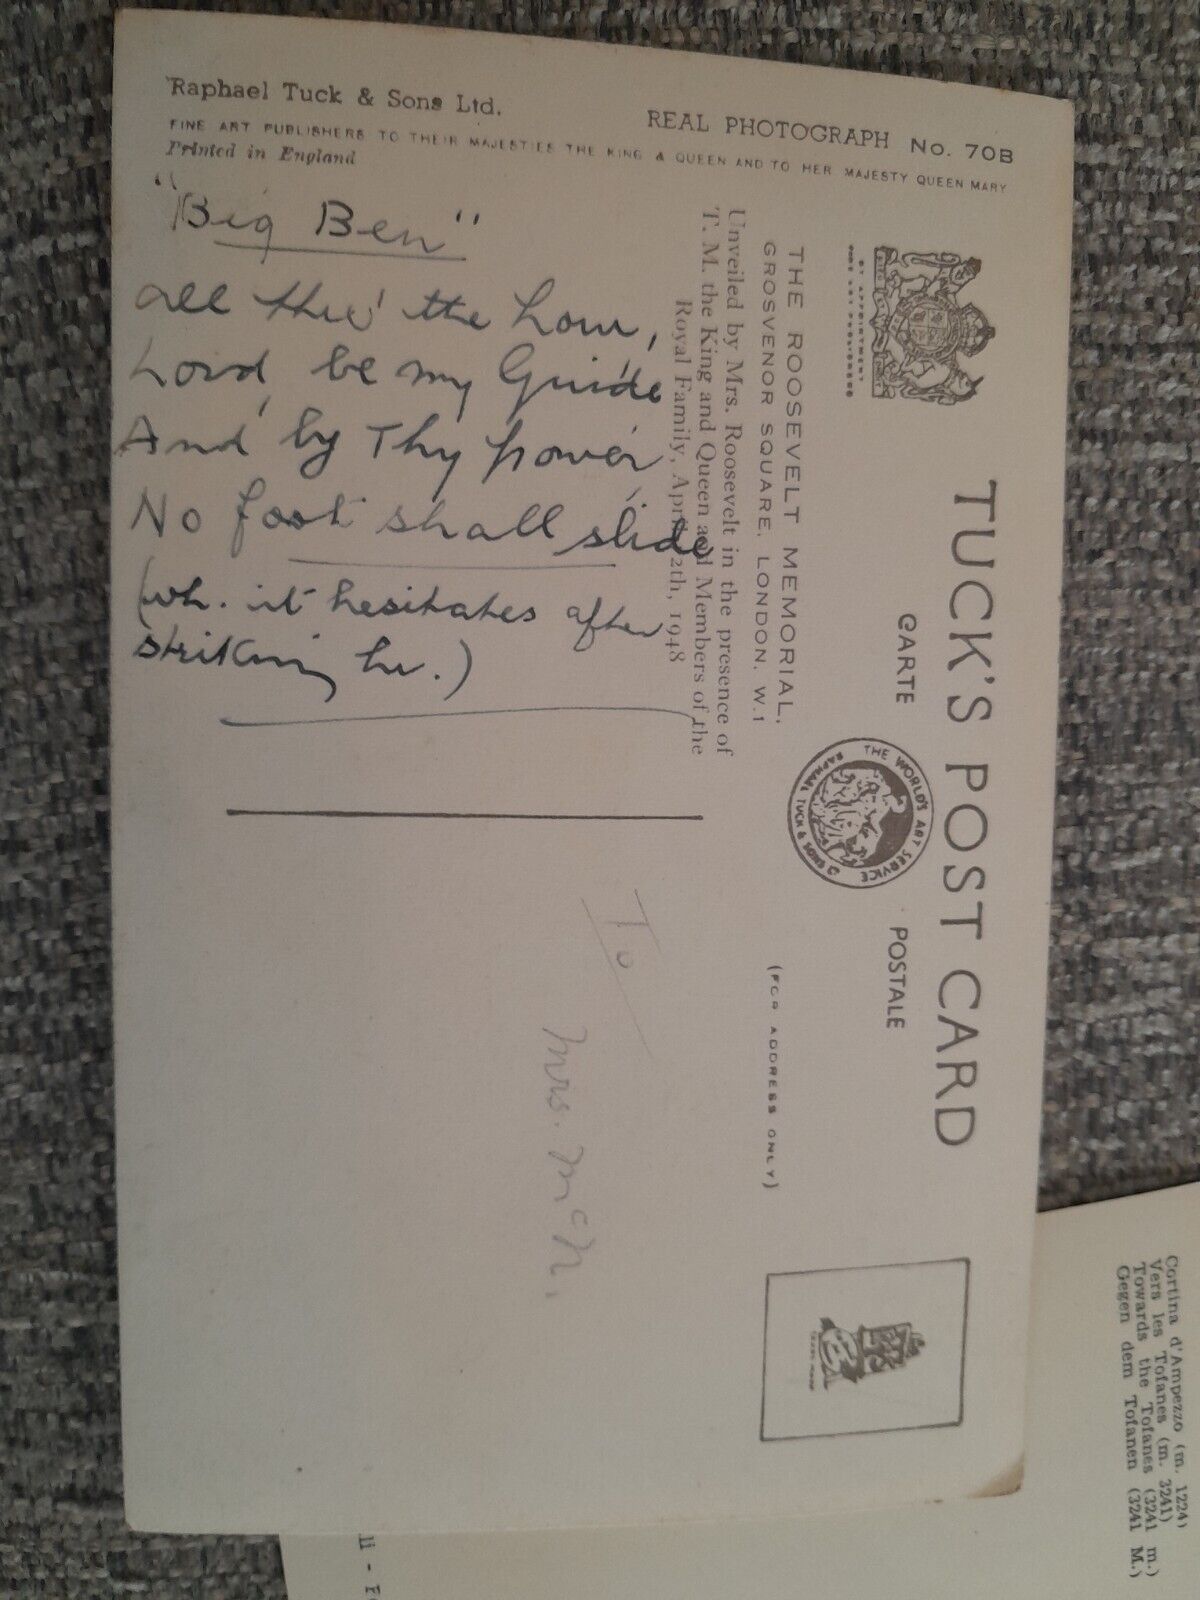 Raphael Tuck & Sons Ltd.
FINE ART PUBLISHERS TO THEIR MAJESTIES THE KING & QUEEN AND TO HER MAJESTY QUEEN MARY
Printed in England
REAL PHOTOGRAPH No. 70B
"Big Ben"
All thro' the hour,
Lord, be my Guide
And by Thy power,
No foot shall slide
(wh. it hesitates after
striking hr.)
TUCK'S POST CARD
CARTE
POSTALE
BY APPOINTMENT
FINE ART PUBLISHERS
THE WORLD'S ART SERVICE
RAPHAEL TUCK & SONS
THE ROOSEVELT MEMORIAL,
GROSVENOR SQUARE, LONDON, W.1
Unveiled by Mrs. Roosevelt in the presence of
T. M. the King and Queen and Members of the
Royal Family, April 12th, 1948
(FOR ADDRESS ONLY)
To
Mrs. McN.
Cortina d'Ampezzo (m. 1224)
Vers les Tofanes (m. 3241)
Towards the Tofanes (3241 m.)
Gegen dem Tofanen (3241 M.)